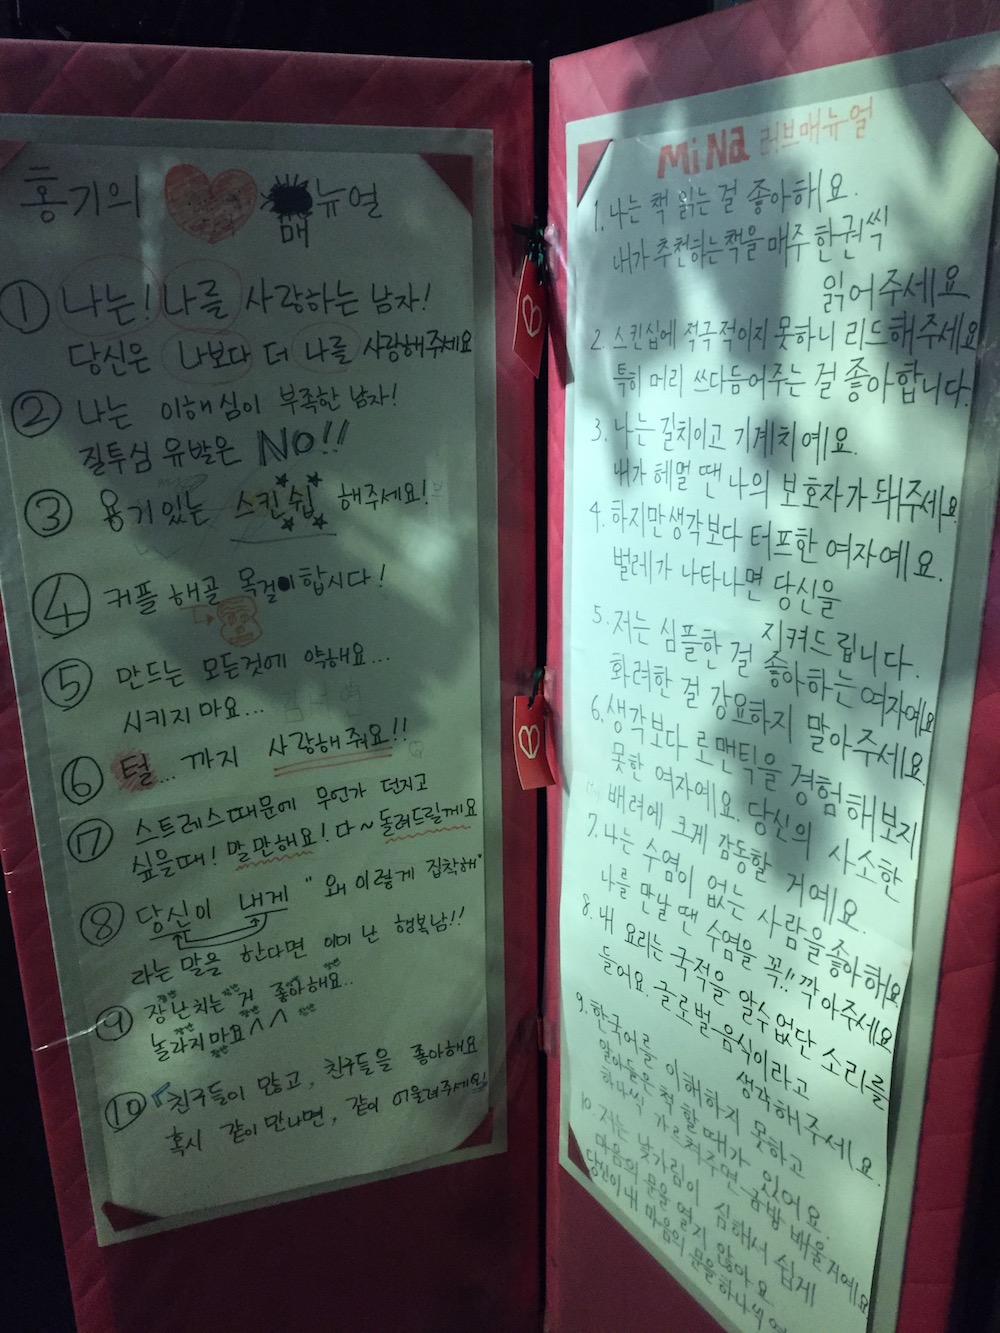 홍기의 ❤ 매뉴얼
① 나는! 나를 사랑하는 남자!
당신은 나보다 더 나를 사랑해주세요
② 나는 이해심이 부족한 남자!
질투심 유발은 NO!!
③ 용기있는 스킨쉽 해주세요!
④ 커플 해골 목걸이 합시다!
⑤ 만드는 모든것에 약해요...
시키지 마요...
⑥ 털... 까지 사랑해줘요!!
⑦ 스트레스때문에 무언가 던지고
싶을때! 말만해요! 다~ 돌려드릴께요
⑧ 당신이 내게 "왜 이렇게 집착해"
라는 말을 한다면 이미 난 행복남!!
⑨ 장난치는 거 좋아해요...
놀라지마요^^
⑩ 친구들이 많고, 친구들을 좋아해요
혹시 같이 만나면, 같이 어울려주세요!
MiNa 러브매뉴얼
1. 나는 책 읽는 걸 좋아해요.
내가 추천하는 책을 매주 한권씩
읽어주세요
2. 스킨십에 적극적이지 못하니 리드해주세요
특히 머리 쓰다듬어주는 걸 좋아합니다.
3. 나는 길치이고 기계치예요.
내가 헤멜 땐 나의 보호자가 돼주세요.
4. 하지만 생각보다 터프한 여자예요.
벌레가 나타나면 당신을
지켜드립니다.
5. 저는 심플한 걸 좋아하는 여자예요
화려한 걸 강요하지 말아주세요
6. 생각보다 로맨틱을 경험해보지
못한 여자예요. 당신의 사소한
배려에 크게 감동할 거예요.
7. 나는 수염이 없는 사람을 좋아해요
나를 만날 땐 수염을 꼭!! 깍아주세요
8. 내 요리는 국적을 알수없단 소리를
들어요. 글로벌 음식이라고
생각해주세요.
9. 한국어를 이해하지 못하고
알아들은 척 할 때가 있어요.
하나씩 가르쳐주면 금방 배울거예요
10. 저는 낯가림이 심해서 쉽게
마음의 문을 열지 않아요
당신이 내 마음의 문을 하나씩